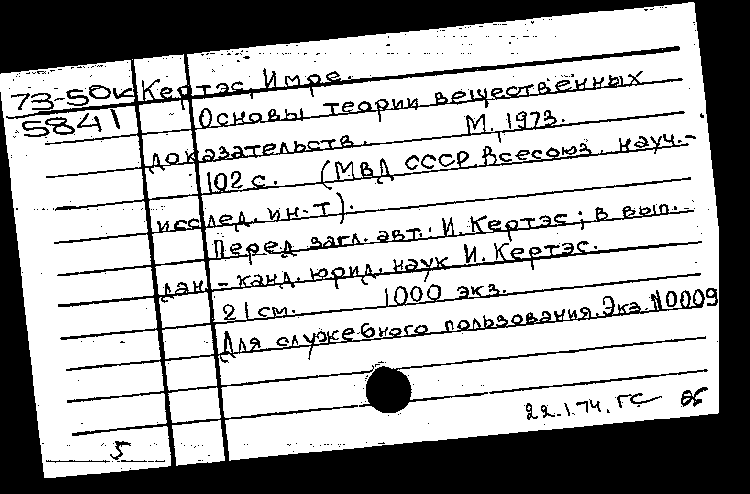 73-50к Кертэс, Имре.
5841
Основы теории вещественных
доказательств. М., 1973.
102 с. (МВД СССР. Всесоюз. науч.-
исслед. ин-т).
Перед загл. авт.: И. Кертэс; в вып.
дан. - канд. юрид. наук И. Кертэс.
21 см. 1000 экз.
Для служебного пользования. Экз. №0009
22.1.74. ГС
5